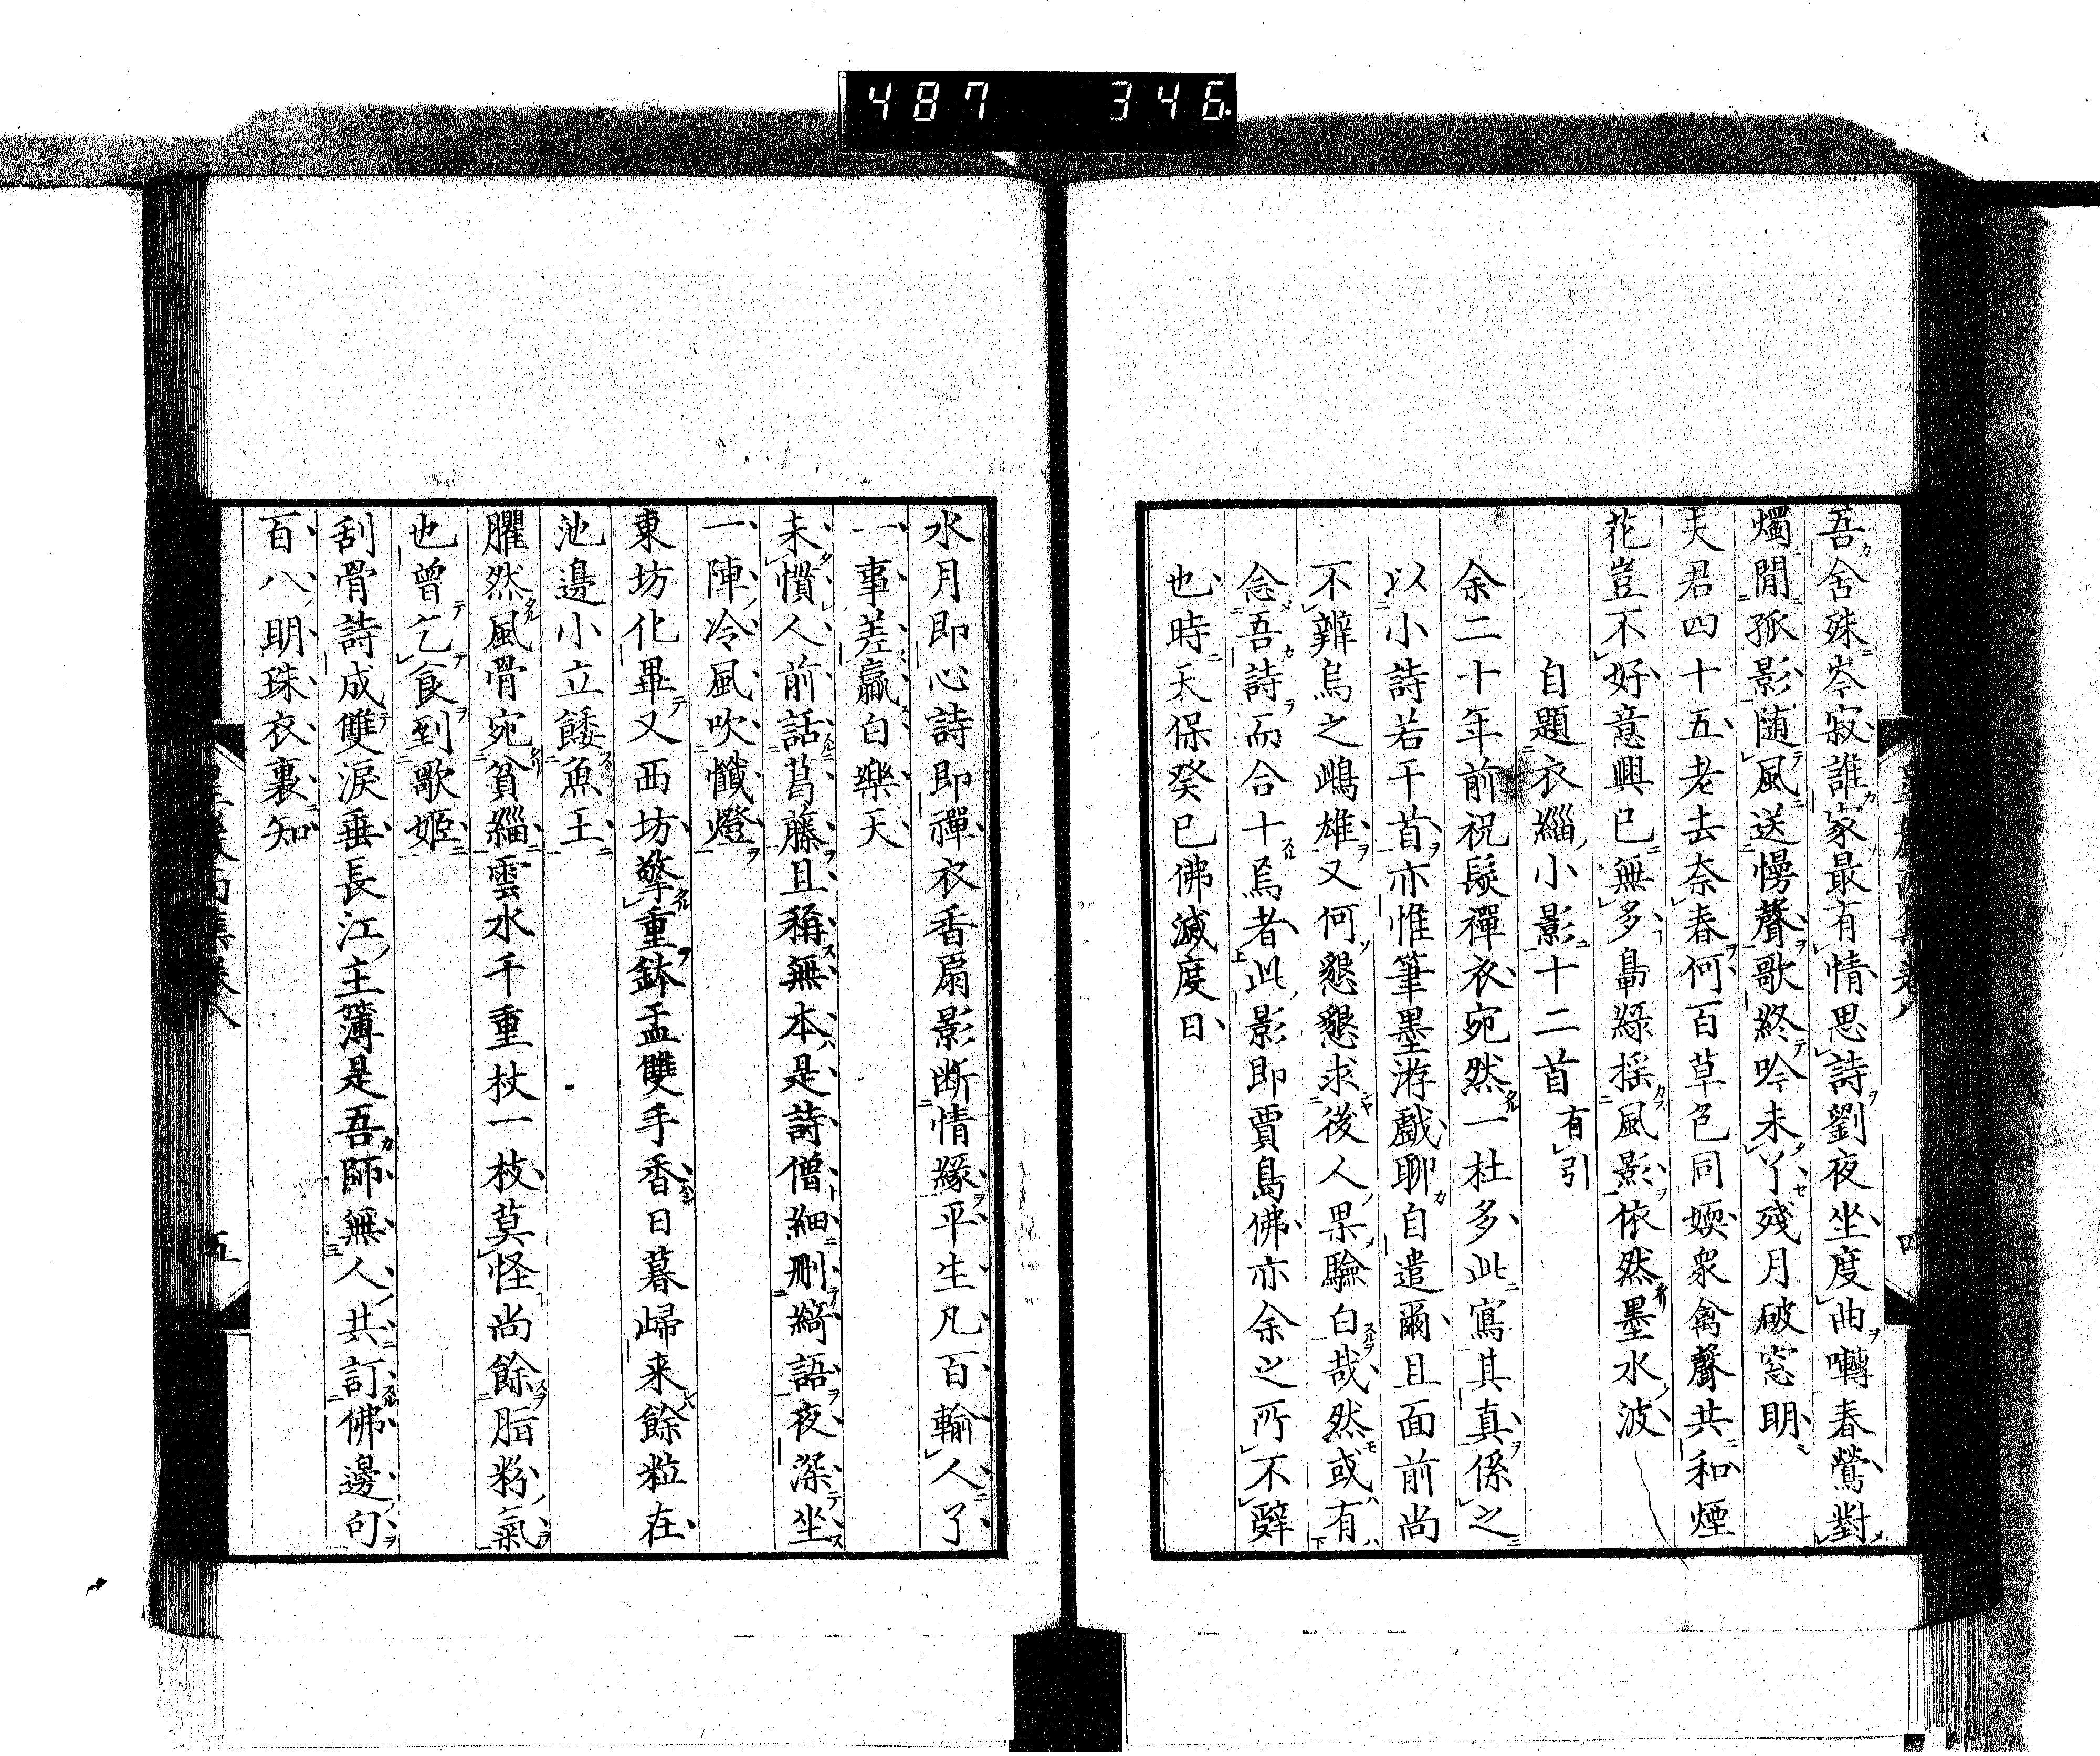 487 346
吾舍殊岑寂誰家最有情思詩劉夜坐度曲囀春鶯對
燭閒孤影随風送慢聲歌終吟未了殘月破窓明
夫君四十五老去奈春何百草色同媆衆禽聲共和煙
花豈不好意興已無多畠綠揺風影依然墨水波
自題衣緇小影十二首有引
余二十年前祝髮禪衣宛然一杜多此寫其真係之
以小詩若干首亦惟筆墨游戲聊自遣爾且面前尚
不辨烏之鴟雄又何懇懇求後人果驗白哉然或有
念吾詩而合十焉者此影即賈島佛亦余之所不辭
也時天保癸巳佛滅度日
水月即心詩即禪衣香扇影断情緣平生凡百輸人了
一事差贏白樂天
未慣人前話葛藤且稱無本是詩僧細刪綺語夜深坐
一陣冷風吹懺燈
東坊化畢又西坊擎重鉢盂雙手香日暮歸来餘粒在
池邊小立餧魚王
臞然風骨宛貧緇雲水千重杖一枝莫怪尚餘脂粉氣
也曾乞食到歌姬
刮骨詩成雙淚垂長江主薄是吾師無人共訂佛邊句
百八明珠衣裏知
五